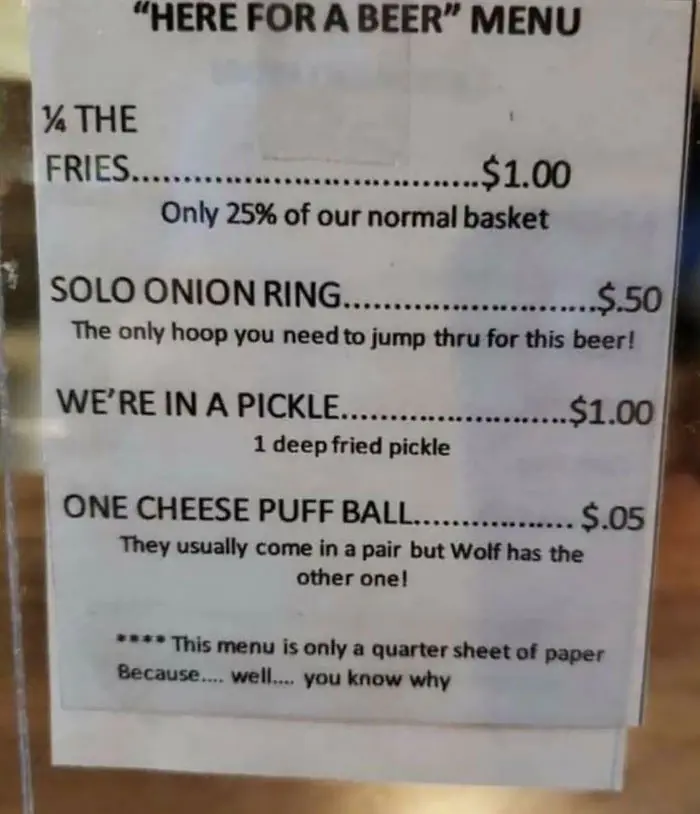 "HERE FOR A BEER" MENU
¼ THE
FRIES..................................$1.00
Only 25% of our normal basket
SOLO ONION RING.........................$.50
The only hoop you need to jump thru for this beer!
WE'RE IN A PICKLE......................$1.00
1 deep fried pickle
ONE CHEESE PUFF BALL................ $.05
They usually come in a pair but Wolf has the
other one!
**** This menu is only a quarter sheet of paper
Because.... well.... you know why